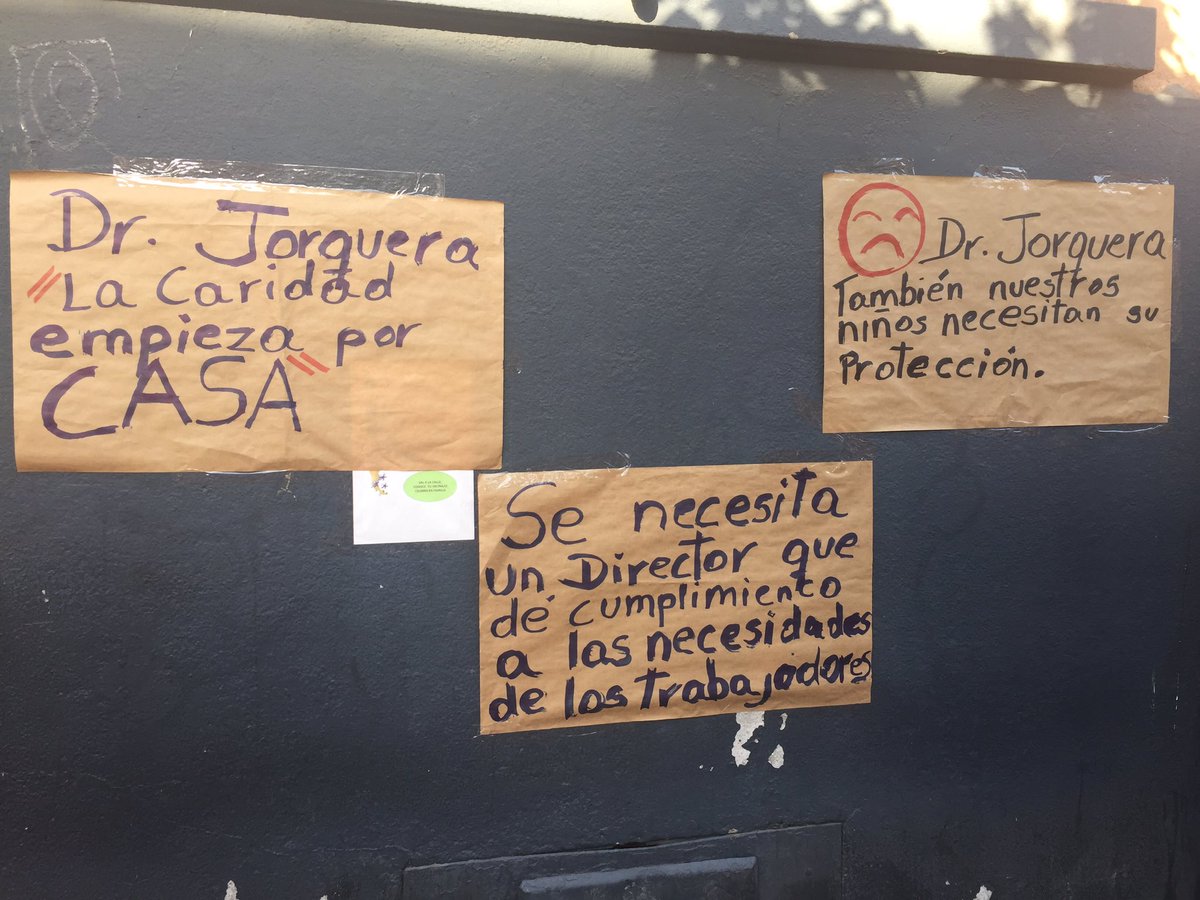 Dr. Jorquera
"La Caridad
empieza por
CASA"
Dr. Jorquera
También nuestros
niños necesitan su
Protección.
Se necesita
un Director que
dé cumplimiento
a las necesidades
de los trabajadores